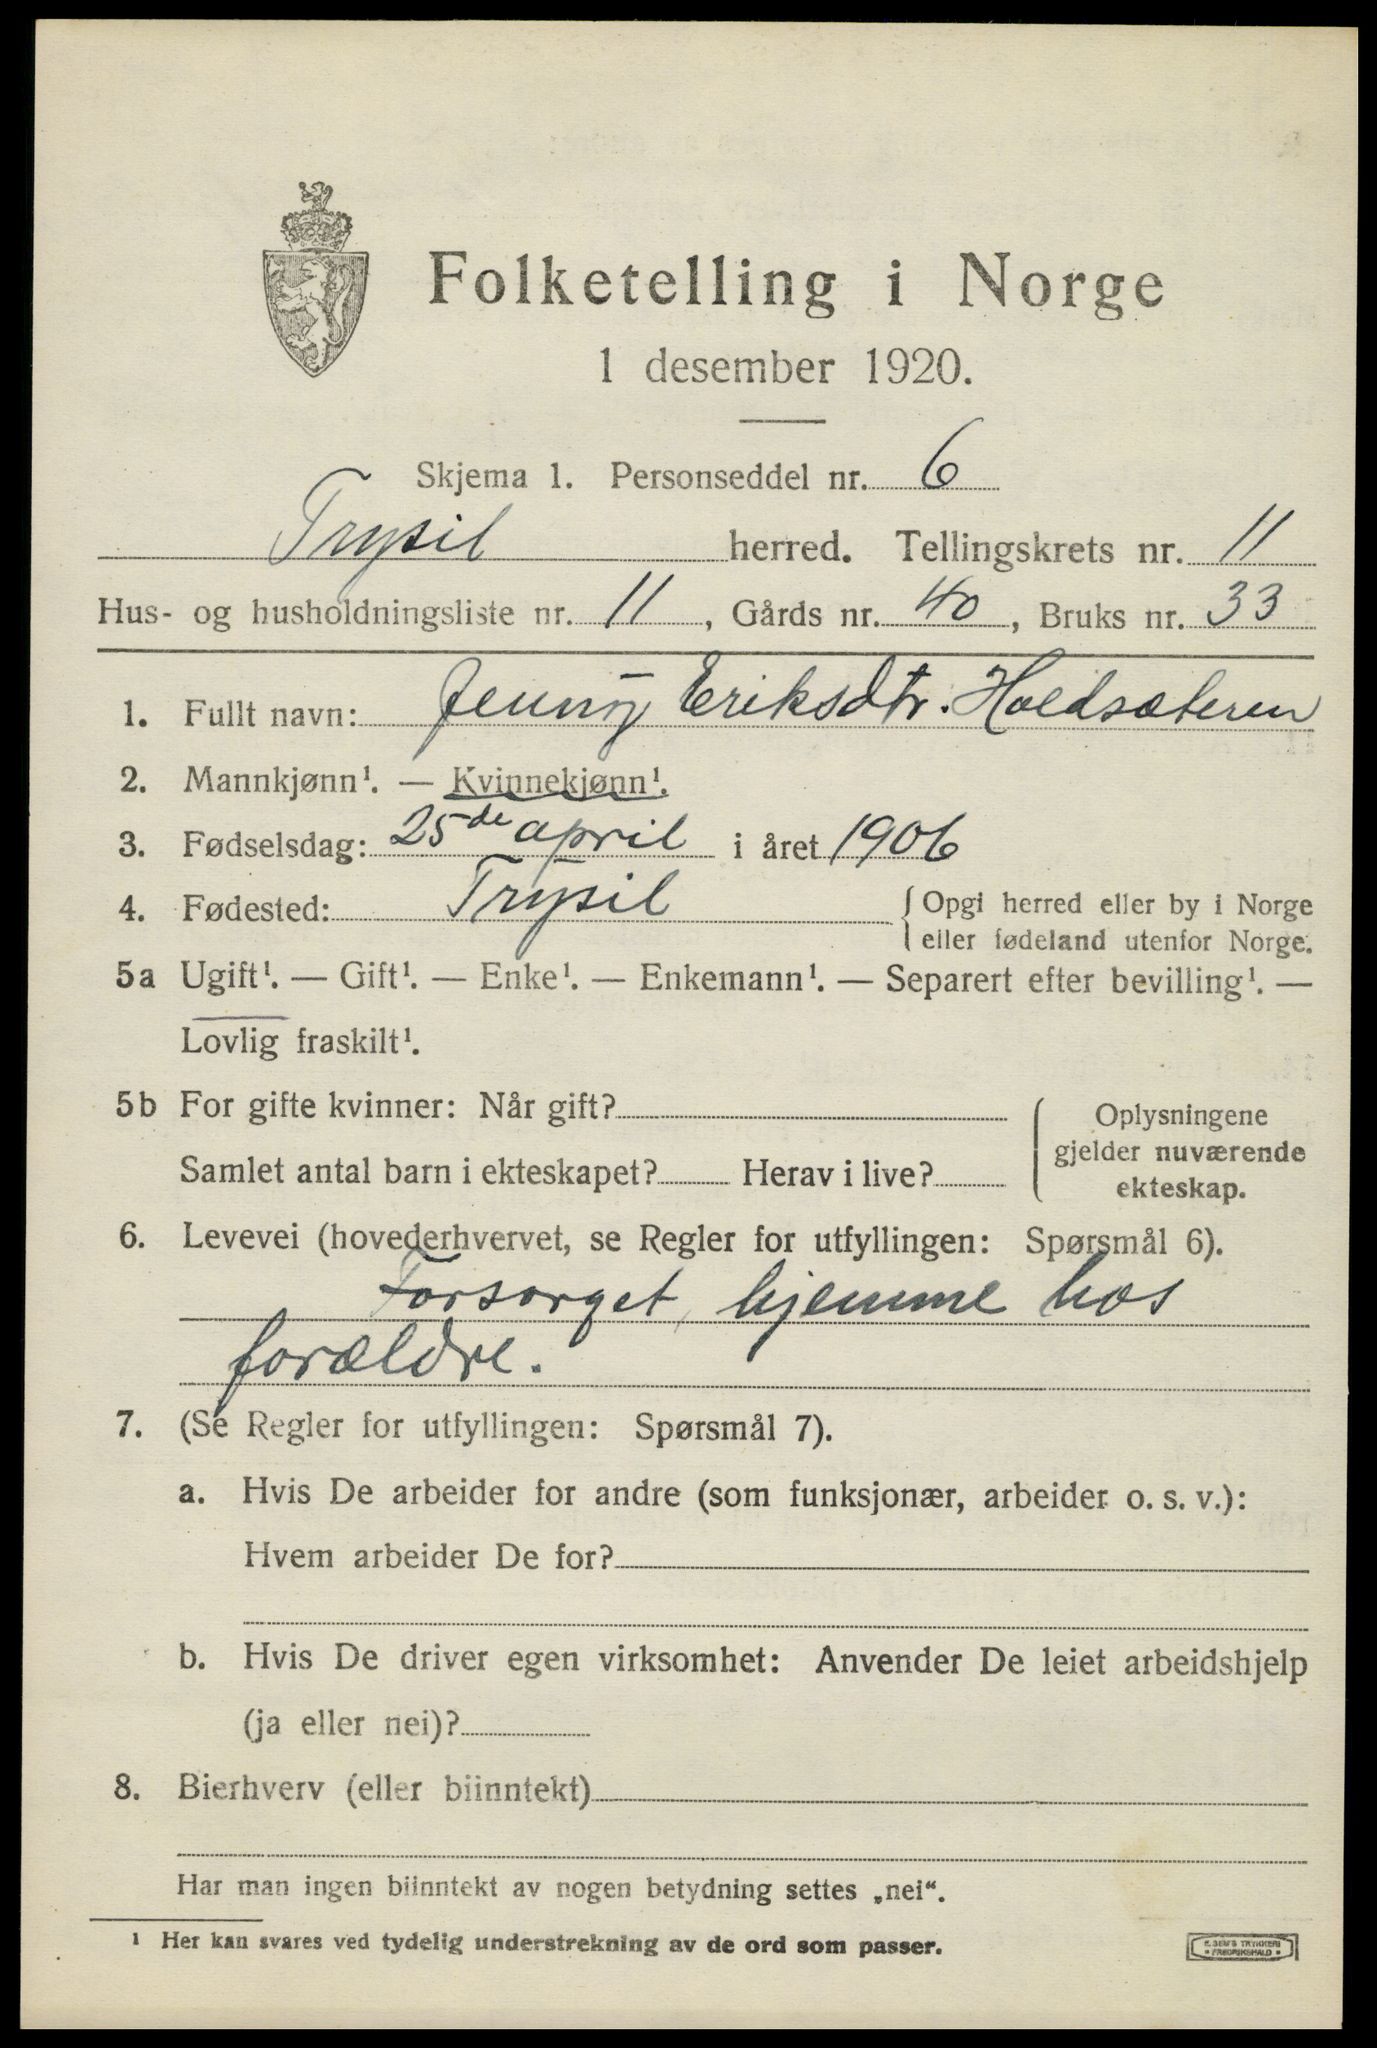 Folketelling i Norge
1 desember 1920.
Skjema 1. Personseddel nr. 6
Trysil herred. Tellingskrets nr. 11
Hus- og husholdningsliste nr. 11, Gårds nr. 40, Bruks nr. 33
1. Fullt navn: Jenny Eriksdtr. Holdsæteren
2. Mannkjønn¹. — Kvinnekjønn¹.
3. Fødselsdag: 25de april i året 1906
4. Fødested: Trysil { Opgi herred eller by i Norge
eller fødeland utenfor Norge.
5a Ugift¹. — Gift¹. — Enke¹. — Enkemann¹. — Separert efter bevilling¹. —
Lovlig fraskilt¹.
5b For gifte kvinner: Når gift?
Samlet antal barn i ekteskapet? Herav i live?
Oplysningene
gjelder nuværende
ekteskap.
6. Levevei (hovederhvervet, se Regler for utfyllingen: Spørsmål 6).
Forsørget, hjemme hos
forældre.
7. (Se Regler for utfyllingen: Spørsmål 7).
a. Hvis De arbeider for andre (som funksjonær, arbeider o. s. v.):
Hvem arbeider De for?
b. Hvis De driver egen virksomhet: Anvender De leiet arbeidshjelp
(ja eller nei)?
8. Bierhverv (eller biinntekt)
Har man ingen biinntekt av nogen betydning settes „nei“.
¹ Her kan svares ved tydelig understrekning av de ord som passer.
E. SEM'S TRYKKERI
• FREDRIKSHALD •